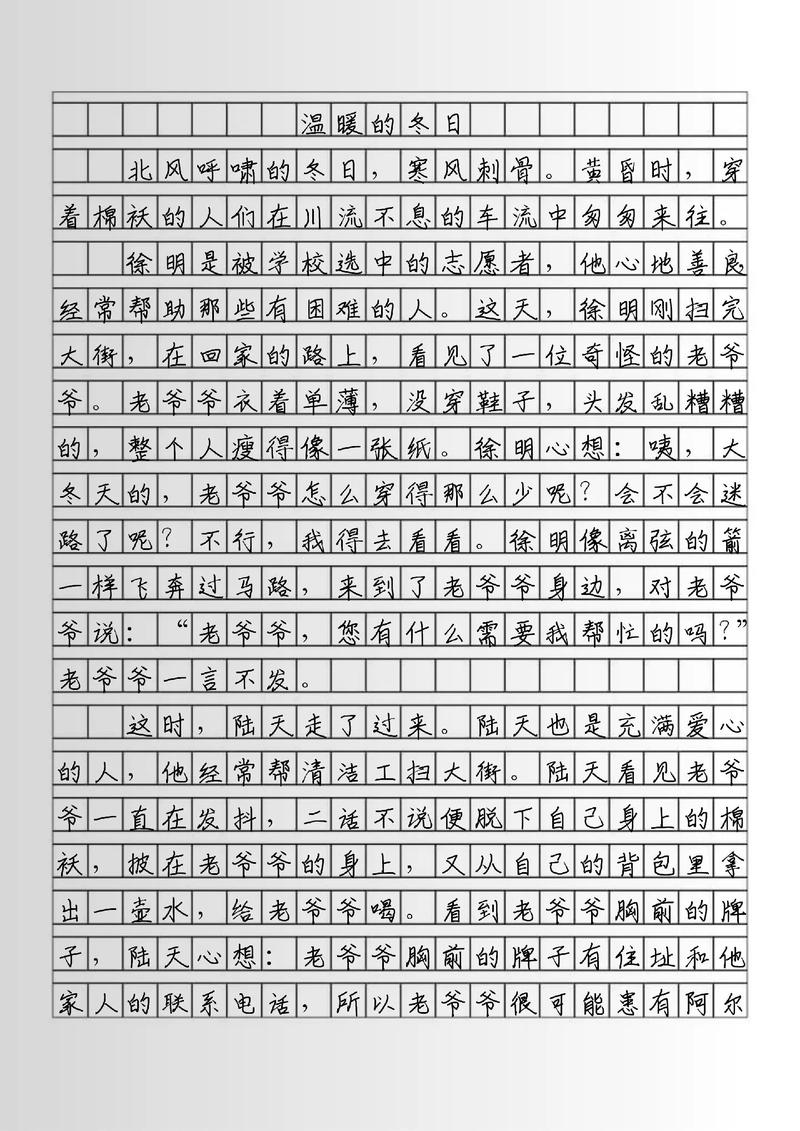 温暖的冬日
北风呼啸的冬日，寒风刺骨。黄昏时，穿
着棉袄的人们在川流不息的车流中匆匆来往。
徐明是被学校选中的志愿者，他心地善良
经常帮助那些有困难的人。这天，徐明刚扫完
大街，在回家的路上，看见了一位奇怪的老爷
爷。老爷爷衣着单薄，没穿鞋子，头发乱糟糟
的，整个人瘦得像一张纸。徐明心想：咦，大
冬天的，老爷爷怎么穿得那么少呢？会不会迷
路了呢？不行，我得去看看。徐明像离弦的箭
一样飞奔过马路，来到了老爷爷身边，对老爷
爷说：“老爷爷，您有什么需要我帮忙的吗？”
老爷爷一言不发。
这时，陆天走了过来。陆天也是充满爱心
的人，他经常帮清洁工扫大街。陆天看见老爷
爷一直在发抖，二话不说便脱下自己身上的棉
袄，披在老爷爷的身上，又从自己的背包里拿
出一壶水，给老爷爷喝。看到老爷爷胸前的牌
子，陆天心想：老爷爷胸前的牌子有住址和他
家人的联系电话，所以老爷爷很可能患有阿尔